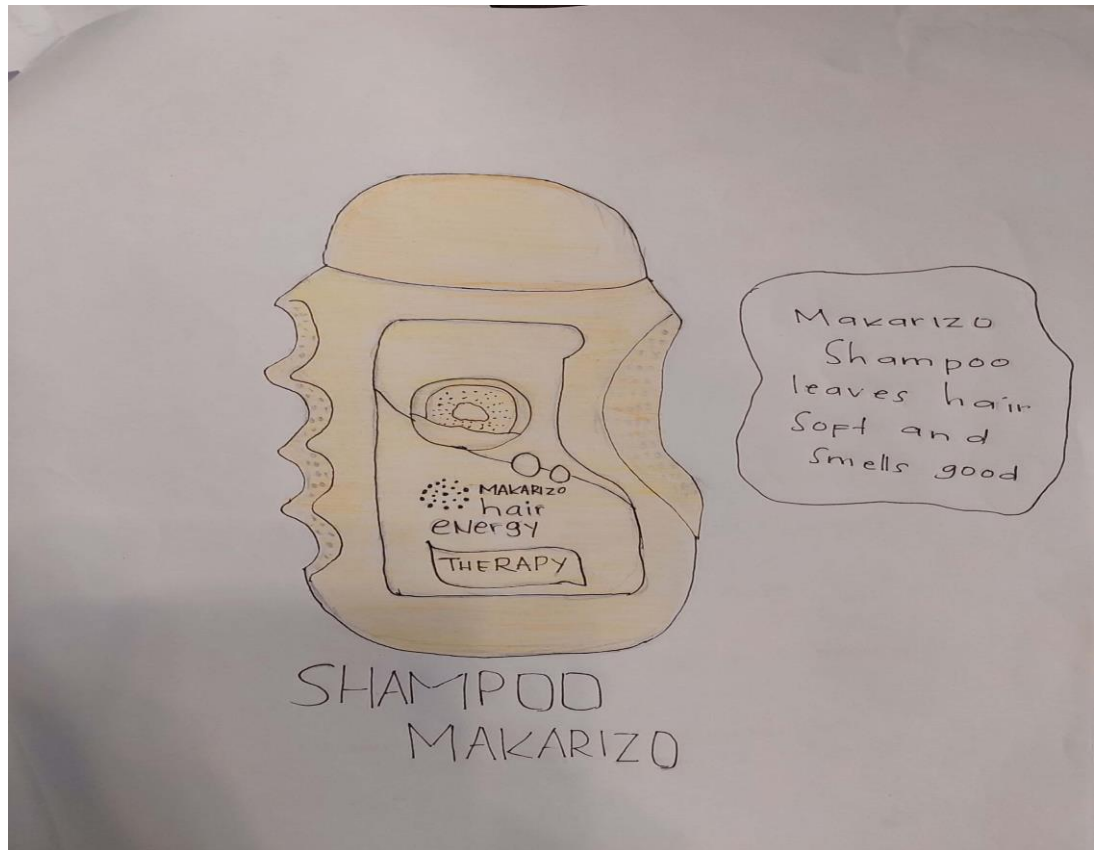 MAKARIZO
hair
eNergy
THERAPY
Makarizo
Shampoo
leaves hair
Soft and
Smells good
SHAMPOO
MAKARIZO